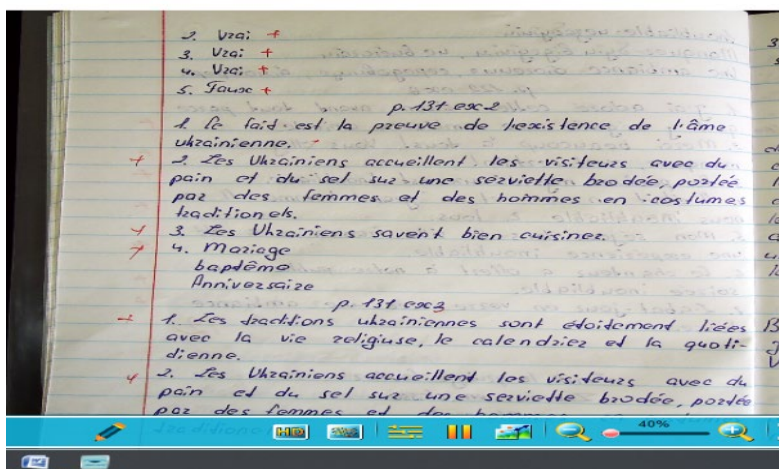 2. Vrai +
3. Vrai +
4. Vrai +
5. Faux +
p. 131 ex 2
1. Ce fait est la preuve de l'existence de l'âme
ukrainienne.
+ 2. Les Ukrainiens accueillent les visiteurs avec du
pain et du sel sur une serviette brodée, portée
par des femmes et des hommes en costumes
traditionels.
+ 3. Les Ukrainiens savent bien cuisiner.
+ 4. Mariage
baptême
Anniversaire
p. 131 exc3
+ 1. Les traditions ukrainiennes sont étoitement liées
avec la vie religiuse, le calendrier et la quoti-
dienne.
+ 2. Les Ukrainiens accueillent les visiteurs avec du
pain et du sel sur une serviette brodée, portée
par des femmes et des hommes
HD
40%